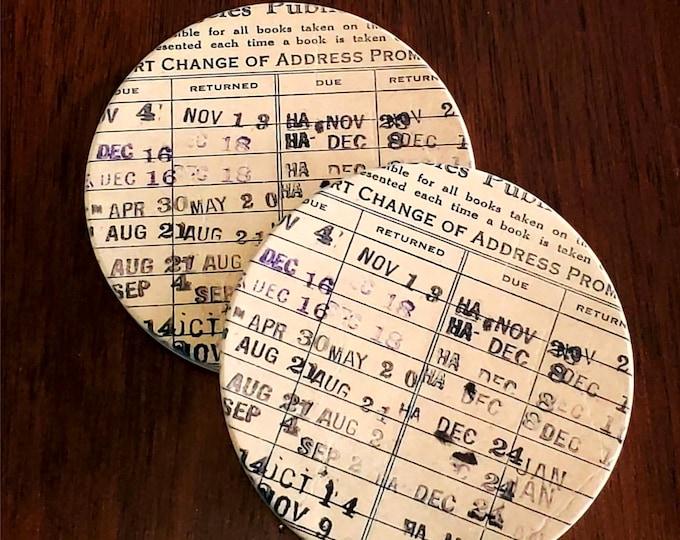 eles Publi
ible for all books taken on th
esented each time a book is taken
RT CHANGE OF ADDRESS PROM
DUE RETURNED DUE RETURN
OV 4 NOV 19 HA NOV
DEC 16 18 HA- DEC 8 DEC 1
DEC 16 18 HA DEC
APR 30 MAY 20 HA
AUG 21 AUG 21
AUG 21 AUG
SEP 4 SEP
14 OCT
NOV
es Publ
ible for all books taken on
esented each time a book is taken
RT CHANGE OF ADDRESS PROM
DUE RETURNED DUE RETURN
V 4 NOV 19 HA NOV NOV 2
DEC 16 18 HA- DEC 8 DEC 1
DEC 16 18 HA DEC 8 DEC
APR 30 MAY 20 HA DEC 8 DEC
AUG 21 AUG 21 HA DEC 24 JAN
AUG 21 AUG 2 24 JAN
SEP 4 SEP 2 HA DEC 24
14 OCT 14 HA DEC
NOV 9